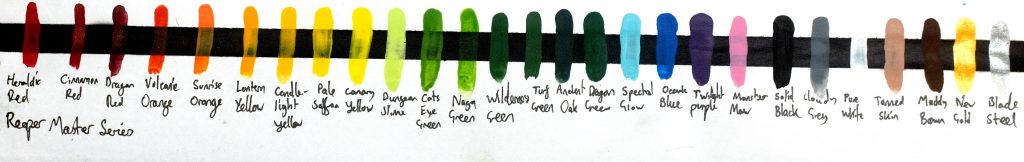 Heraldic Red
Cinnamon Red
Dragon Red
Volcanic Orange
Sunrise Orange
Lantern Yellow
Candle-
light
Yellow
Pale Saffron
Canary Yellow
Dungeon Slime
Cats Eye Green
Naga Green
Wilderness Green
Turf Green
Ancient Oak
Dragon Green
Spectral Glow
Oceanic Blue
Twilight purple
Monster Maw
Solid Black
Cloudy Grey
Pure White
Tanned Skin
Muddy Brown
New Gold
Blade Steel
Reaper Master Series